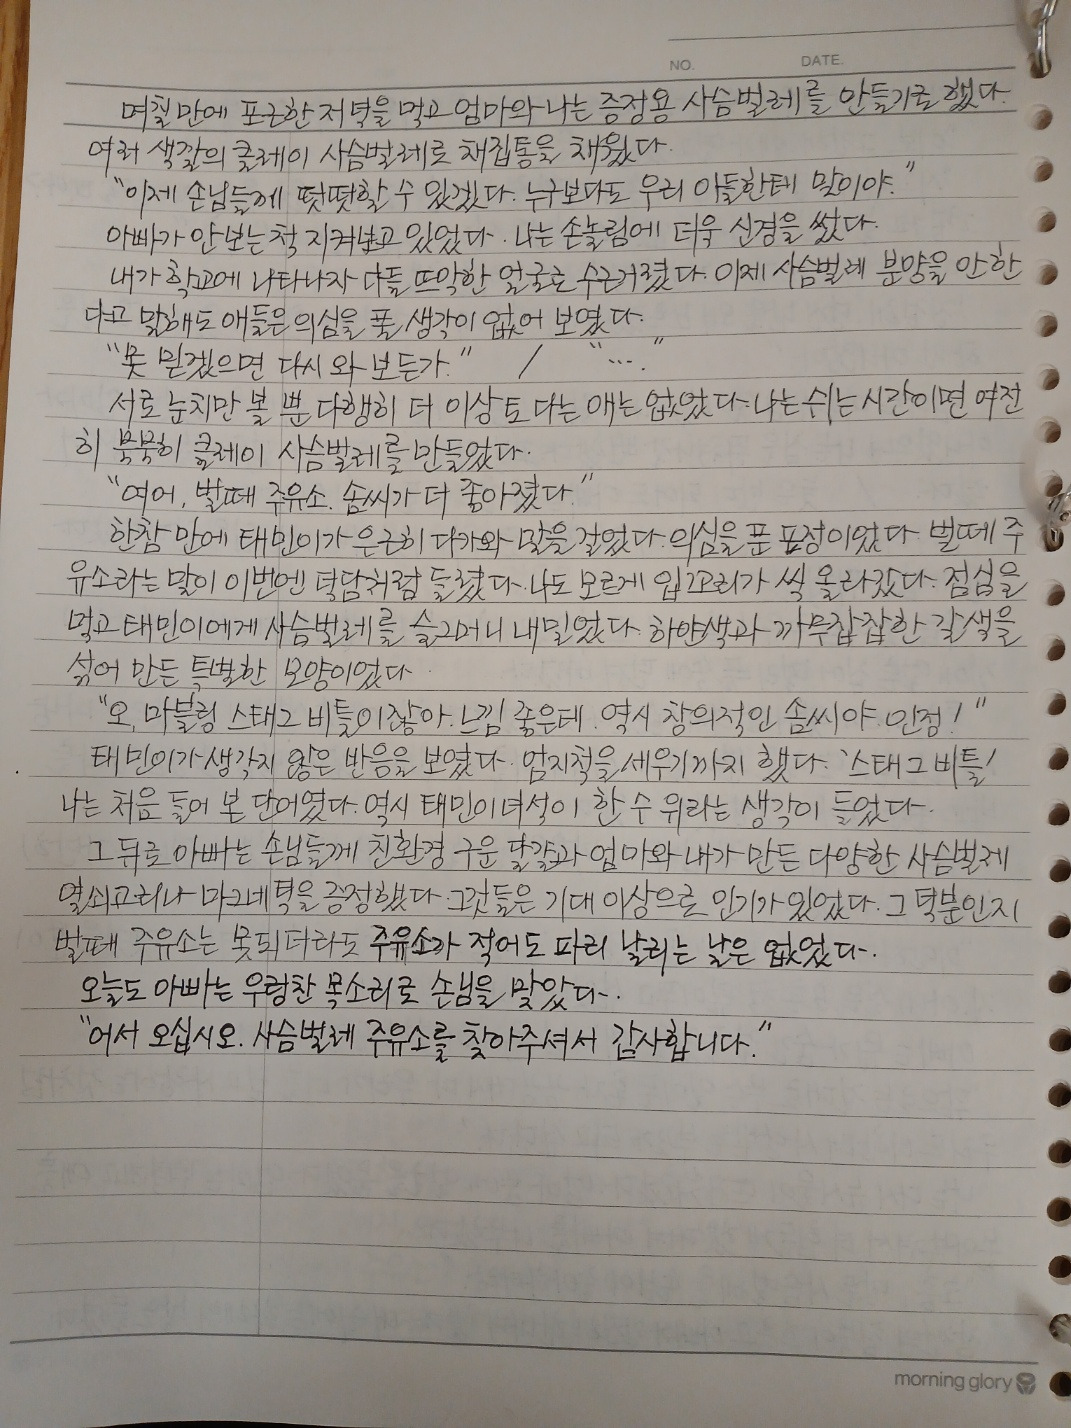 NO. DATE.
며칠 만에 포근한 저녁을 먹고 엄마와 나는 증정용 사슴벌레를 만들기로 했다.
여러 색깔의 클레이 사슴벌레로 채집통을 채웠다.
"이제 손님들께 떳떳할 수 있겠다. 누구보다도 우리 아들한테 말이야."
아빠가 안 보는 척 지켜보고 있었다. 나는 손놀림에 더욱 신경을 썼다.
내가 학교에 나타나자 다들 뜨악한 얼굴로 수근거렸다. 이제 사슴벌레 분양을 안 한
다고 말해도 애들은 의심을 풀 생각이 없어 보였다.
"못 믿겠으면 다시 와 보든가." / "..."
서로 눈치만 볼 뿐 다행히 더 이상 토 다는 애는 없었다. 나는 쉬는 시간이면 여전
히 묵묵히 클레이 사슴벌레를 만들었다.
"여어, 벌떼 주유소. 솜씨가 더 좋아졌다."
한참 만에 태민이가 은근히 다가와 말을 걸었다. 의심을 푼 표정이었다. 벌떼 주
유소라는 말이 이번엔 덕담처럼 들렸다. 나도 모르게 입꼬리가 씩 올라갔다. 점심을
먹고 태민이에게 사슴벌레를 슬그머니 내밀었다. 하얀색과 까무잡잡한 갈색을
섞어 만든 특별한 모양이었다.
"오, 마블링 스태그 비틀이잖아. 느낌 좋은데. 역시 창의적인 솜씨야. 인정!"
태민이가 생각지 않은 반응을 보였다. 엄지척을 세우기까지 했다. '스태그 비틀'
나는 처음 들어 본 단어였다. 역시 태민이 녀석이 한 수 위라는 생각이 들었다.
그 뒤로 아빠는 손님들께 친환경 구운 달걀과 엄마와 내가 만든 다양한 사슴벌레
열쇠고리나 마그네틱을 증정했다. 그것들은 기대 이상으로 인기가 있었다. 그 덕분인지
벌떼 주유소는 못 되더라도 주유소가 적어도 파리 날리는 날은 없었다.
오늘도 아빠는 우렁찬 목소리로 손님을 맞았다.
"어서 오십시오. 사슴벌레 주유소를 찾아주셔서 감사합니다."
morning glory